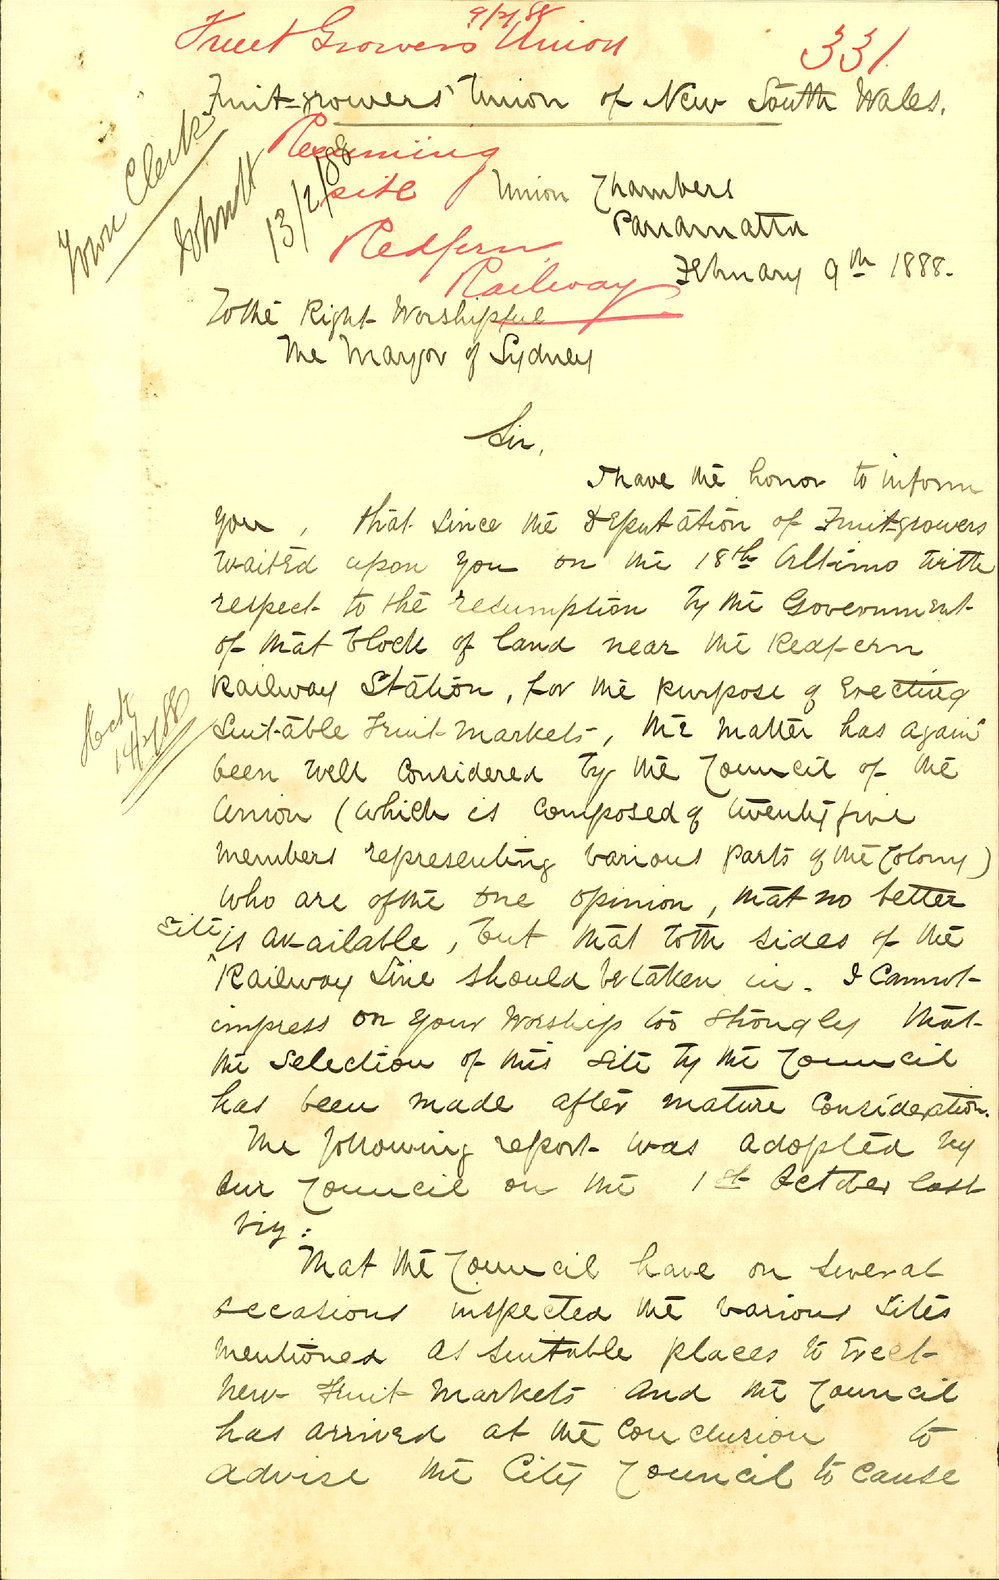 9/2/88
Fruit Growers Union
331
Fruit-growers' Union of New South Wales.
Resuming
site
Redfern
Railway
Town Clerk
13/2/88
Union Chambers
Parramatta
February 9th 1888.
To the Right Worshipful
The Mayor of Sydney
Sir,
I have the honor to inform
you, that since the deputation of Fruitgrowers
waited upon you on the 18th Ultimo with
respect to the resumption by the Government
of that block of land near the Redfern
Railway Station, for the purpose of erecting
suitable Fruit Markets, the matter has again
14/2/88
been well considered by the Council of the
Union (which is composed of twenty five
members representing various parts of the Colony)
who are of the one opinion, that no better
site
is available, but that both sides of the
Railway Line should be taken in. I cannot
impress on your Worship too strongly that
the selection of this site by the Council
has been made after mature consideration.
The following report was adopted by
our Council on the 1st October last
viz:
That the Council have on several
occasions inspected the various sites
mentioned as suitable places to erect
new Fruit Markets and the Council
has arrived at the conclusion to
advise the City Council to cause